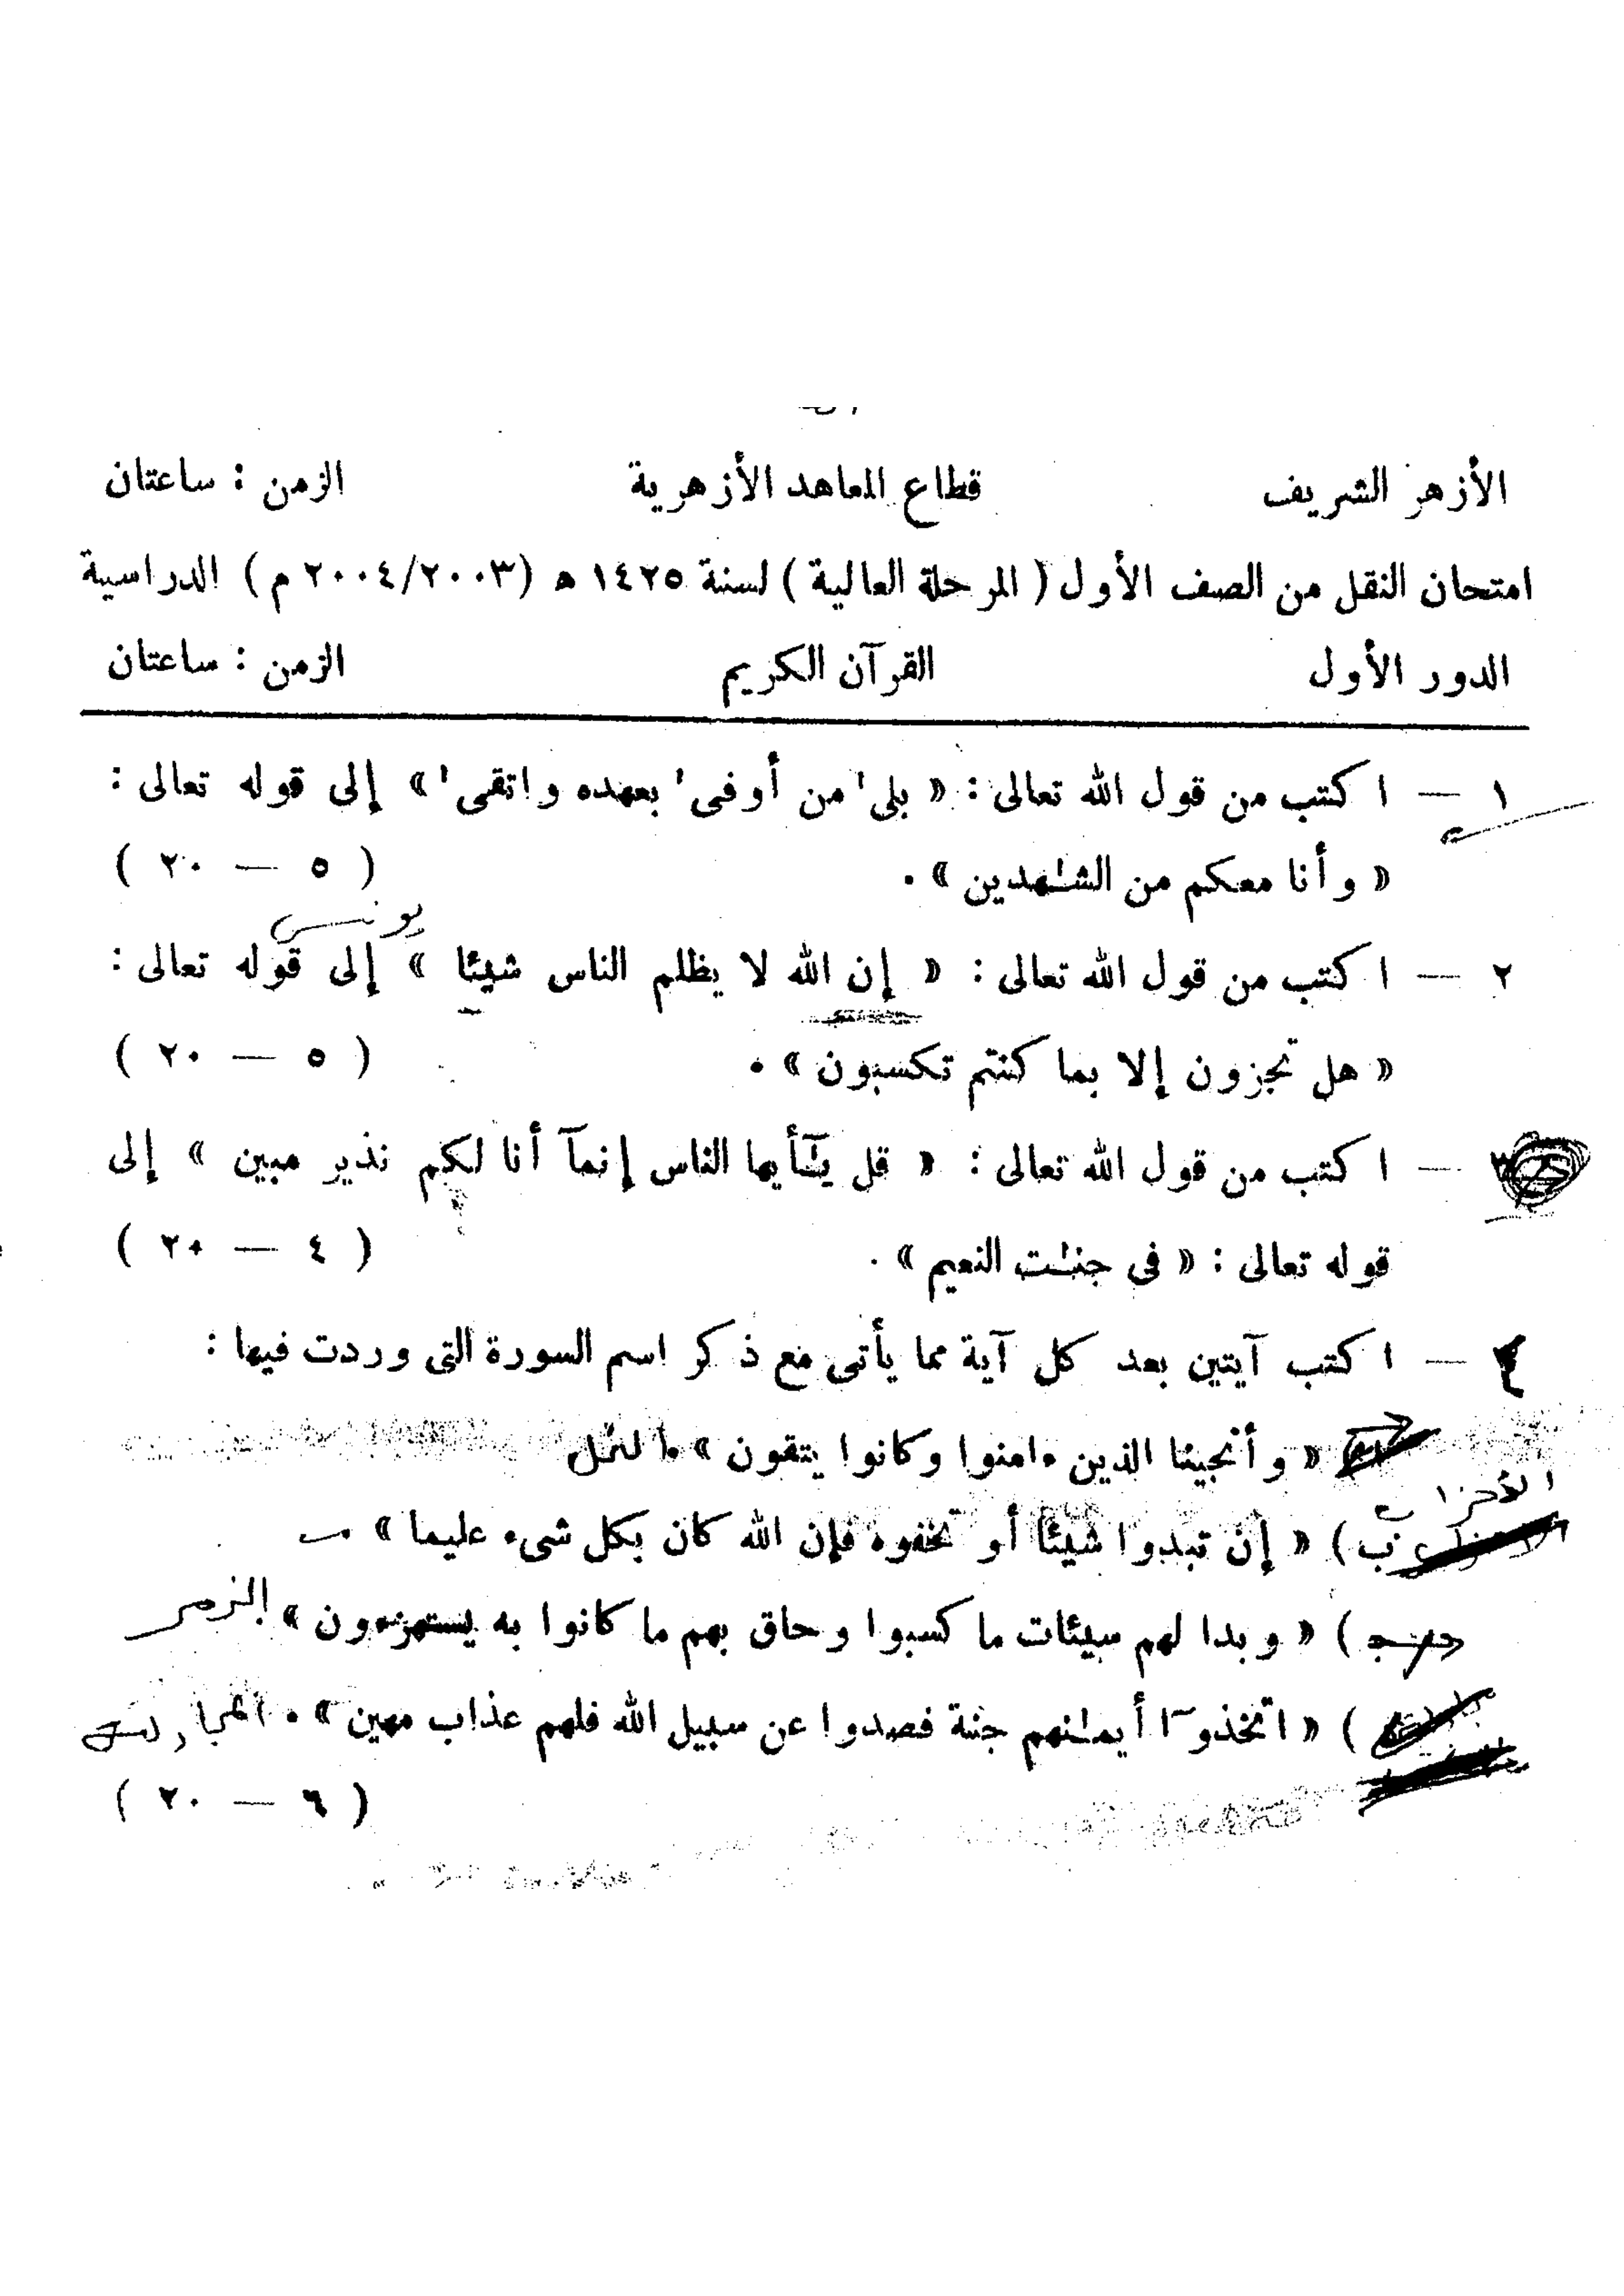 الأزهر الشريف قطاع المعاهد الأزهرية الزمن : ساعتان
امتحان النقل من الصف الأول ( المرحلة العالية ) لسنة ١٤٢٥ ه (٢٠٠٤/٢٠٠٣ م ) الدراسية
الدور الأول القرآن الكريم الزمن : ساعتان
١ — اكتب من قول الله تعالى : « بلى' من أوفى' بعهده واتقى' » إلى قوله تعالى :
« وأنا معكم من الشٰهدين » . ( ٥ — ٢٠ )
يونس
٢ — اكتب من قول الله تعالى : « إن الله لا يظلم الناس شيئا » إلى قوله تعالى :
« هل تجزون إلا بما كنتم تكسبون » . ( ٥ — ٢٠ )
٣ — اكتب من قول الله تعالى : « قل يٰٓأيها الناس إنمآ أنا لكم نذير مبين » إلى
قوله تعالى : « فى جنٰت النعيم » . ( ٤ — ٢٠ )
٤ — اكتب آيتين بعد كل آية مما يأتى مع ذكر اسم السورة التى وردت فيها :
« وأنجينا الذين ءامنوا وكانوا يتقون » . النمل
الأحزاب
ب ) « إن تبدوا شيئا أو تخفوه فإن الله كان بكل شىء عليما » .
ج ) « وبدا لهم سيئات ما كسبوا وحاق بهم ما كانوا به يستهزءون » الزمر
) « اتخذوٓا أيمٰنهم جنة فصدوا عن سبيل الله فلهم عذاب مهين » .
( ٦ — ٢٠ )